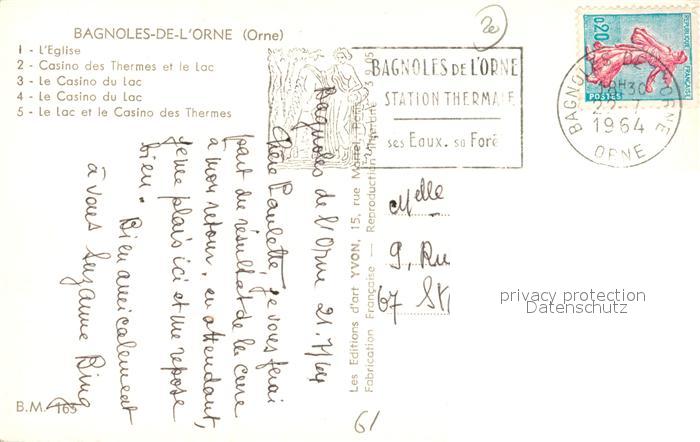 BAGNOLES-DE-L'ORNE (Orne)
1 - L'Eglise
2 - Casino des Thermes et le Lac
3 - Le Casino du Lac
4 - Le Casino du Lac
5 - Le Lac et le Casino des Thermes
Bagnoles de l'Orne 21.7/64
Chère Paulette, je vous ferai
part du résultat de la cure
à mon retour, en attendant,
je me plais ici et me repose
bien. Bien amicalement
à vous Suzanne Bing
B.M. 165
Les Editions d'art YVON, 15, rue Martel,
Fabrication Française — Reproduction Interdite
20
BAGNOLES DE L'ORNE
STATION THERMALE
ses Eaux. sa Forê
REPUBLIQUE FRANÇAISE
0,20
POSTES
BAGNOLES DE L'ORNE
18H30
7
1964
ORNE
Melle
9, Ru
67 St
privacy protection
Datenschutz
61